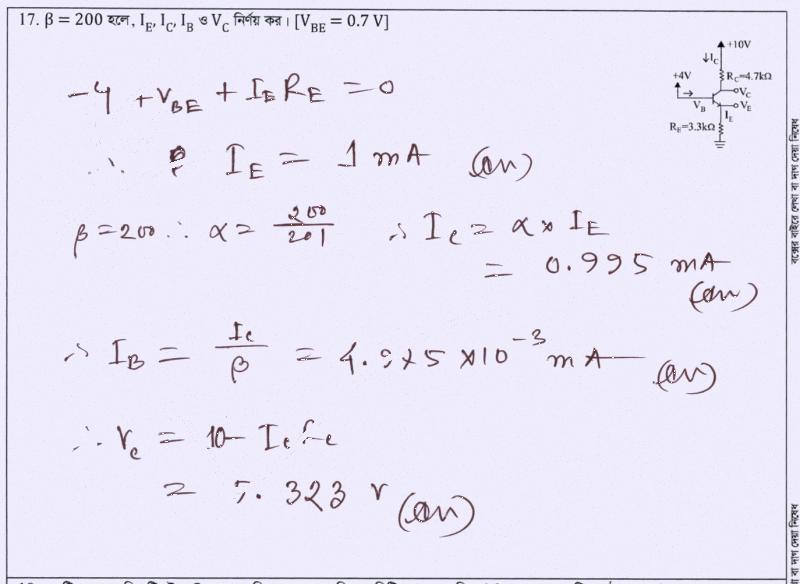 17. β = 200 হলে, I_E, I_C, I_B ও V_C নির্ণয় কর। [V_BE = 0.7 V]
+10V
↓I_C
R_C=4.7kΩ
+4V
V_C
V_B
V_E
I_E
R_E=3.3kΩ
-4 + V_BE + I_E R_E = 0
∴ I_E = 1 mA (an)
β = 200 ∴ α = 200/201 ∴ I_c = α × I_E
= 0.995 mA
(an)
∴ I_B = I_c/β = 4.975 × 10^-3 mA (an)
∴ V_c = 10 - I_c R_c
= 5.323 V (an)
বক্সের বাইরে লেখা বা দাগ দেয়া নিষেধ
বা দাগ দেয়া নিষেধ